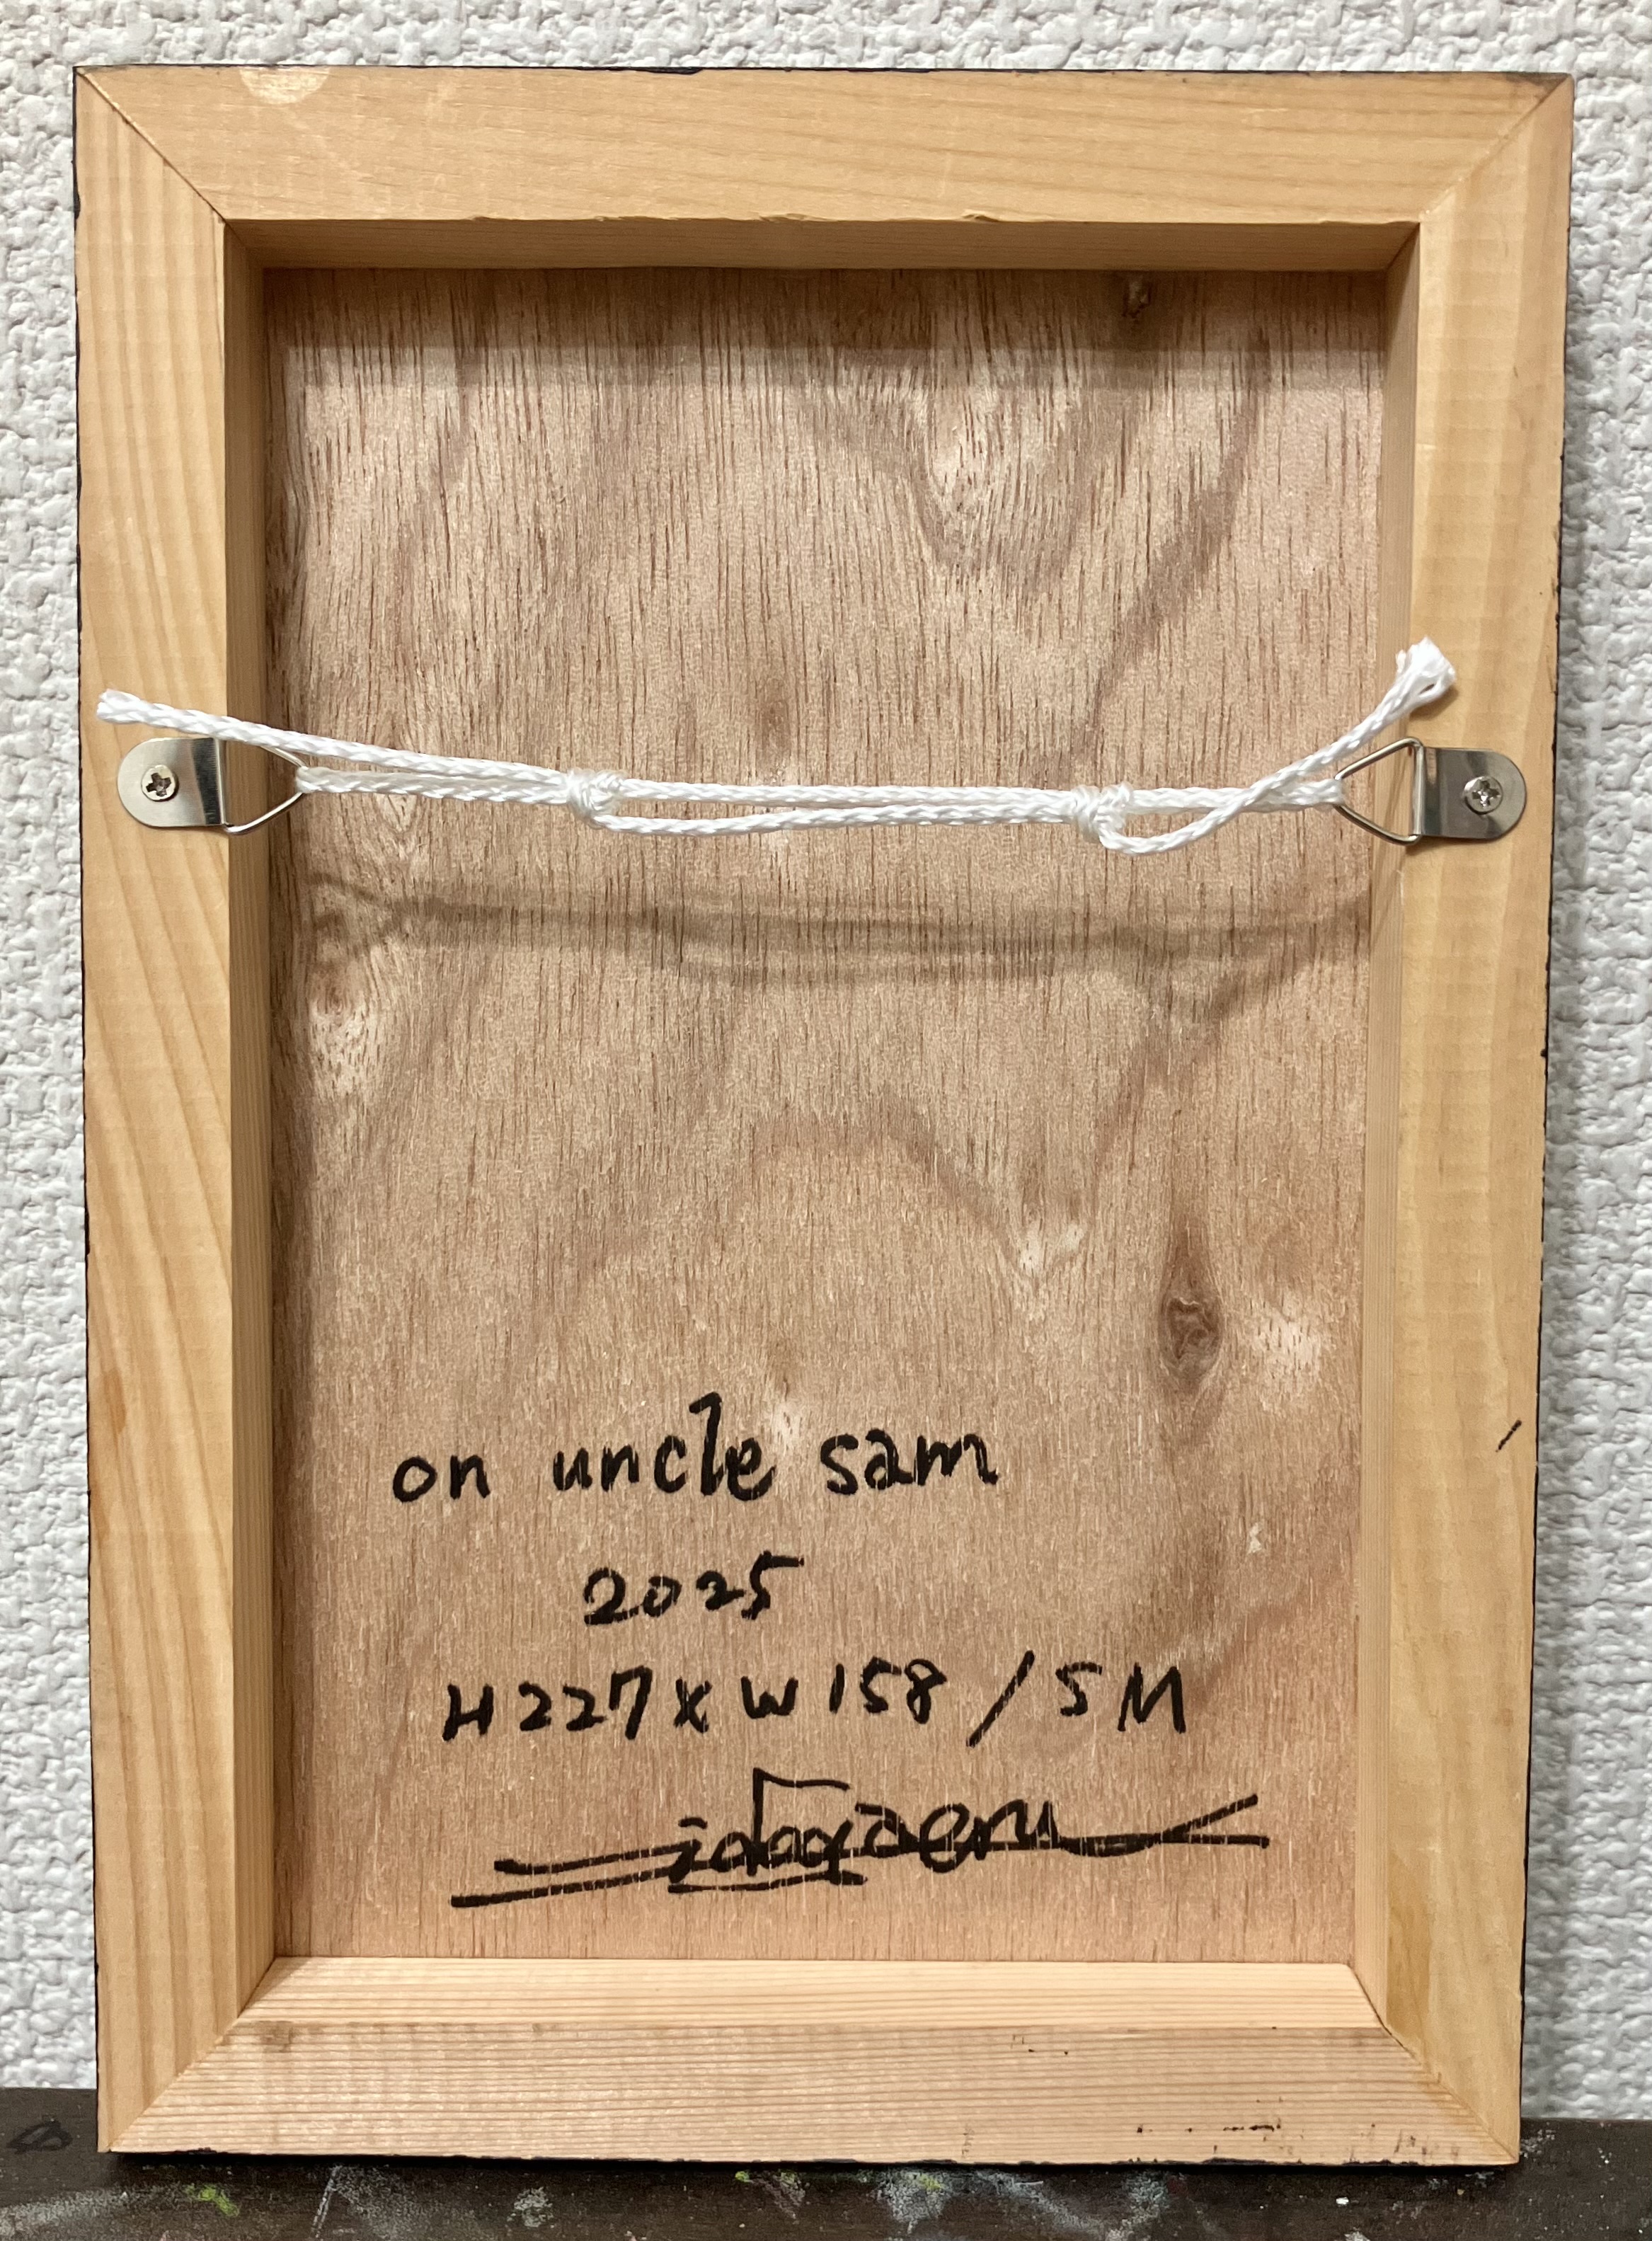 on uncle sam
2025
H227×W158/SM